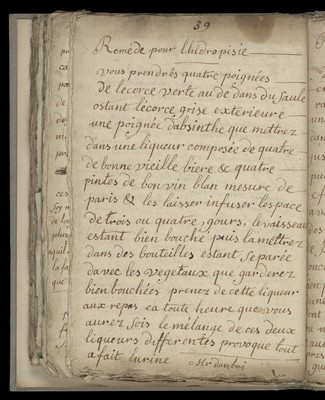 39
Remede pour lhidropisie
vous prendrés quatre poignées
de lecorce verte au de dans du saule
ostant lécorce grise exterieure
une poignée dabsinthe que mettrez
dans une liqueur composée de quatre
de bonne vieille biere & quatre
pintes de bon vin blan mesure de
paris & les laisser infuser lespace
de trois ou quatre, jours, le vaisseau
estant bien bouché puis la mettrez
dans des bouteilles estant separée
davec les vegetaux que garderez
bien bouchées prenez de cette liqueur
aux repas ea toute heure que vous
aurez sois le mélange de ces deux
liqueurs differentes provoque tout
a fait lurine
Mr